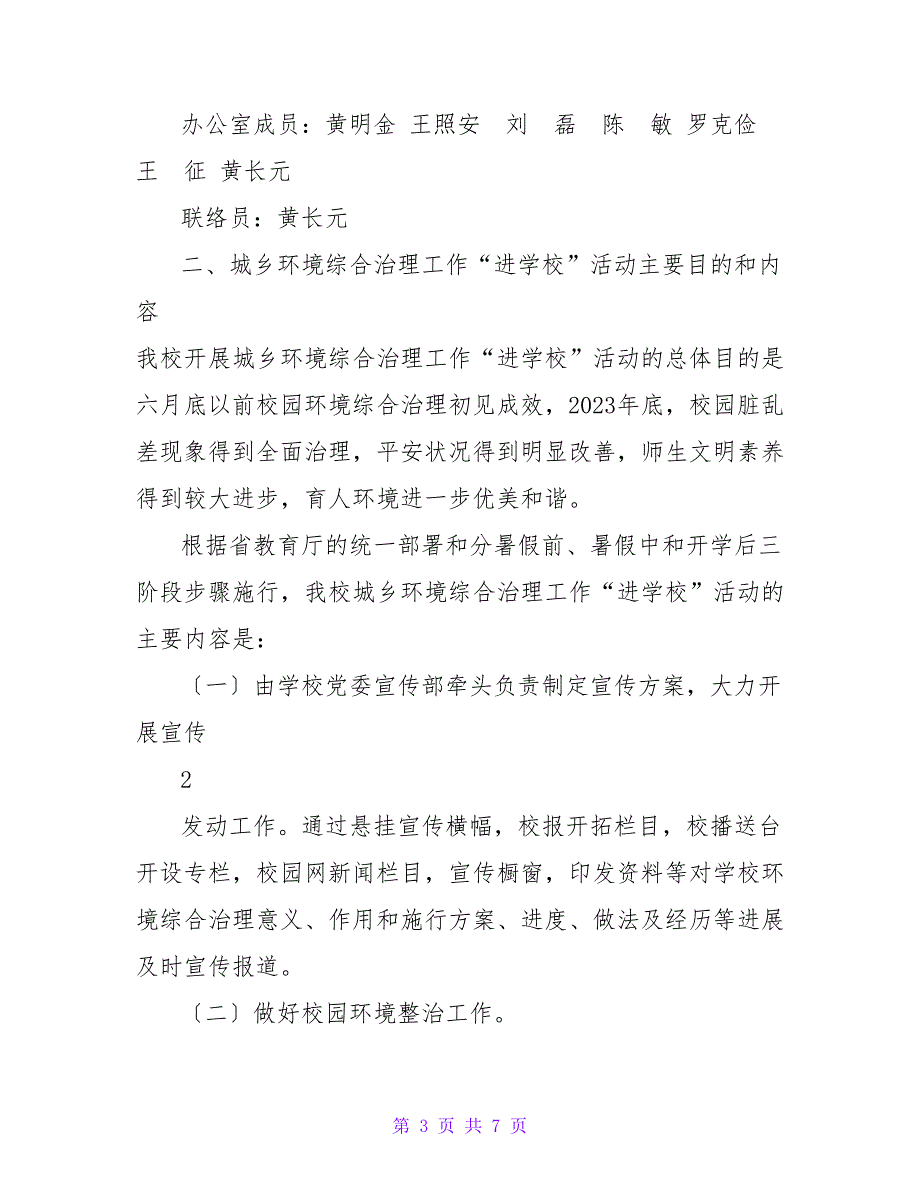 办公室成员：黄明金 王照安　刘　磊　陈　敏 罗克俭
王　征 黄长元
联络员：黄长元
二、城乡环境综合治理工作“进学校”活动主要目的和内
容
我校开展城乡环境综合治理工作“进学校”活动的总体目的是
六月底以前校园环境综合治理初见成效，2023年底，校园脏乱
差现象得到全面治理，平安状况得到明显改善，师生文明素养
得到较大进步，育人环境进一步优美和谐。
根据省教育厅的统一部署和分暑假前、暑假中和开学后三
阶段步骤施行，我校城乡环境综合治理工作“进学校”活动的
主要内容是：
〔一〕由学校党委宣传部牵头负责制定宣传方案，大力开
展宣传
2
发动工作。通过悬挂宣传横幅，校报开拓栏目，校播送台
开设专栏，校园网新闻栏目，宣传橱窗，印发资料等对学校环
境综合治理意义、作用和施行方案、进度、做法及经历等进展
及时宣传报道。
〔二〕做好校园环境整治工作。
第 3 页 共 7 页